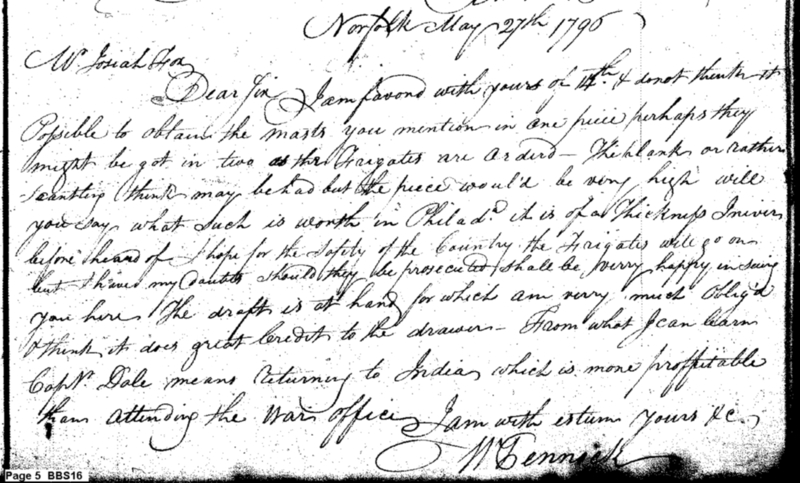 Norfolk May 27th 1796
Mr. Josiah Fox
Dear Sir I am favord with yours of 14th & do not think it
Possible to obtain the masts you mention in one piece perhaps they
might be got in two as the Frigates are ordird - The plank or rather
Scantling think may be had but the piece would be very high will
you say what such is worth in Philad.a it is of a Thickness I niver
before heard of I hope for the Safety of the Country the Frigates will go on
but I have my doubts should they be prosecuted shall be verry happy in seeing
you here The draft is at hand for which am verry much Oblig'd
& think it does great Credit to the drawer - From what I can learn
Capn. Dale means returning to India which is more proffitable
than attending the War office I am with estum yours &c.
Wm Pennock
Page 5 BBS16